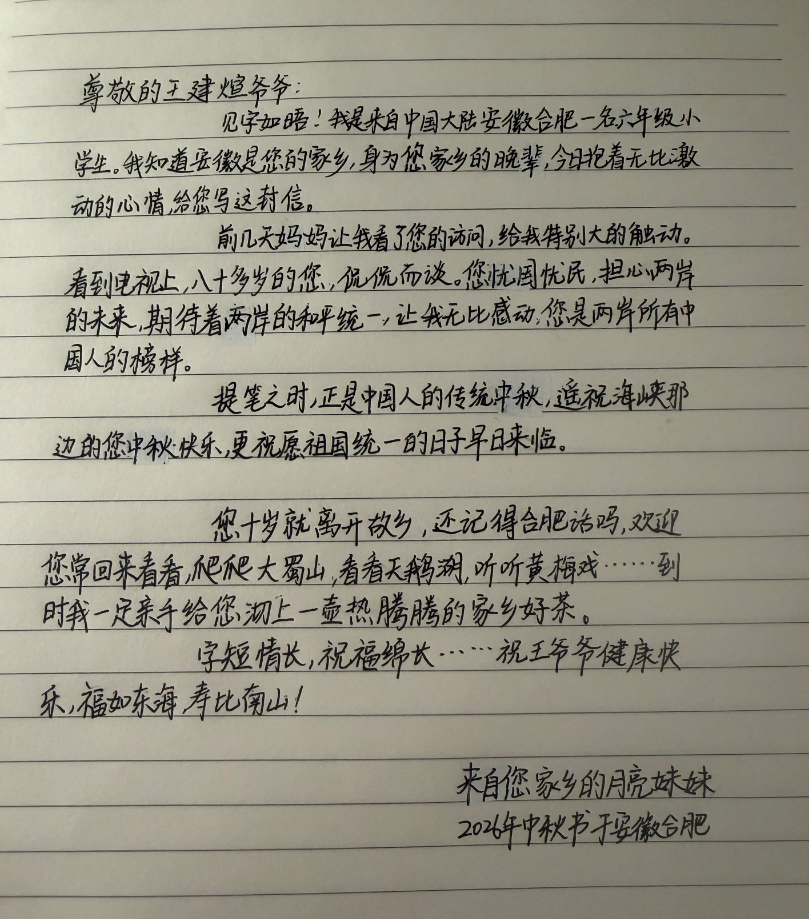 尊敬的王建煊爷爷：
见字如晤！我是来自中国大陆安徽合肥一名六年级小
学生。我知道安徽是您的家乡，身为您家乡的晚辈，今日抱着无比激
动的心情，给您写这封信。
前几天妈妈让我看了您的访问，给我特别大的触动。
看到电视上，八十多岁的您，侃侃而谈。您忧国忧民，担心两岸
的未来，期待着两岸的和平统一，让我无比感动，您是两岸所有中
国人的榜样。
提笔之时，正是中国人的传统中秋，遥祝海峡那
边的您中秋快乐，更祝愿祖国统一的日子早日来临。
您十岁就离开故乡，还记得合肥话吗，欢迎
您常回来看看，爬爬大蜀山，看看天鹅湖，听听黄梅戏……到
时我一定亲手给您沏上一壶热腾腾的家乡好茶。
字短情长，祝福绵长……祝王爷爷健康快
乐，福如东海，寿比南山！
来自您家乡的月亮妹妹
2026年中秋书于安徽合肥